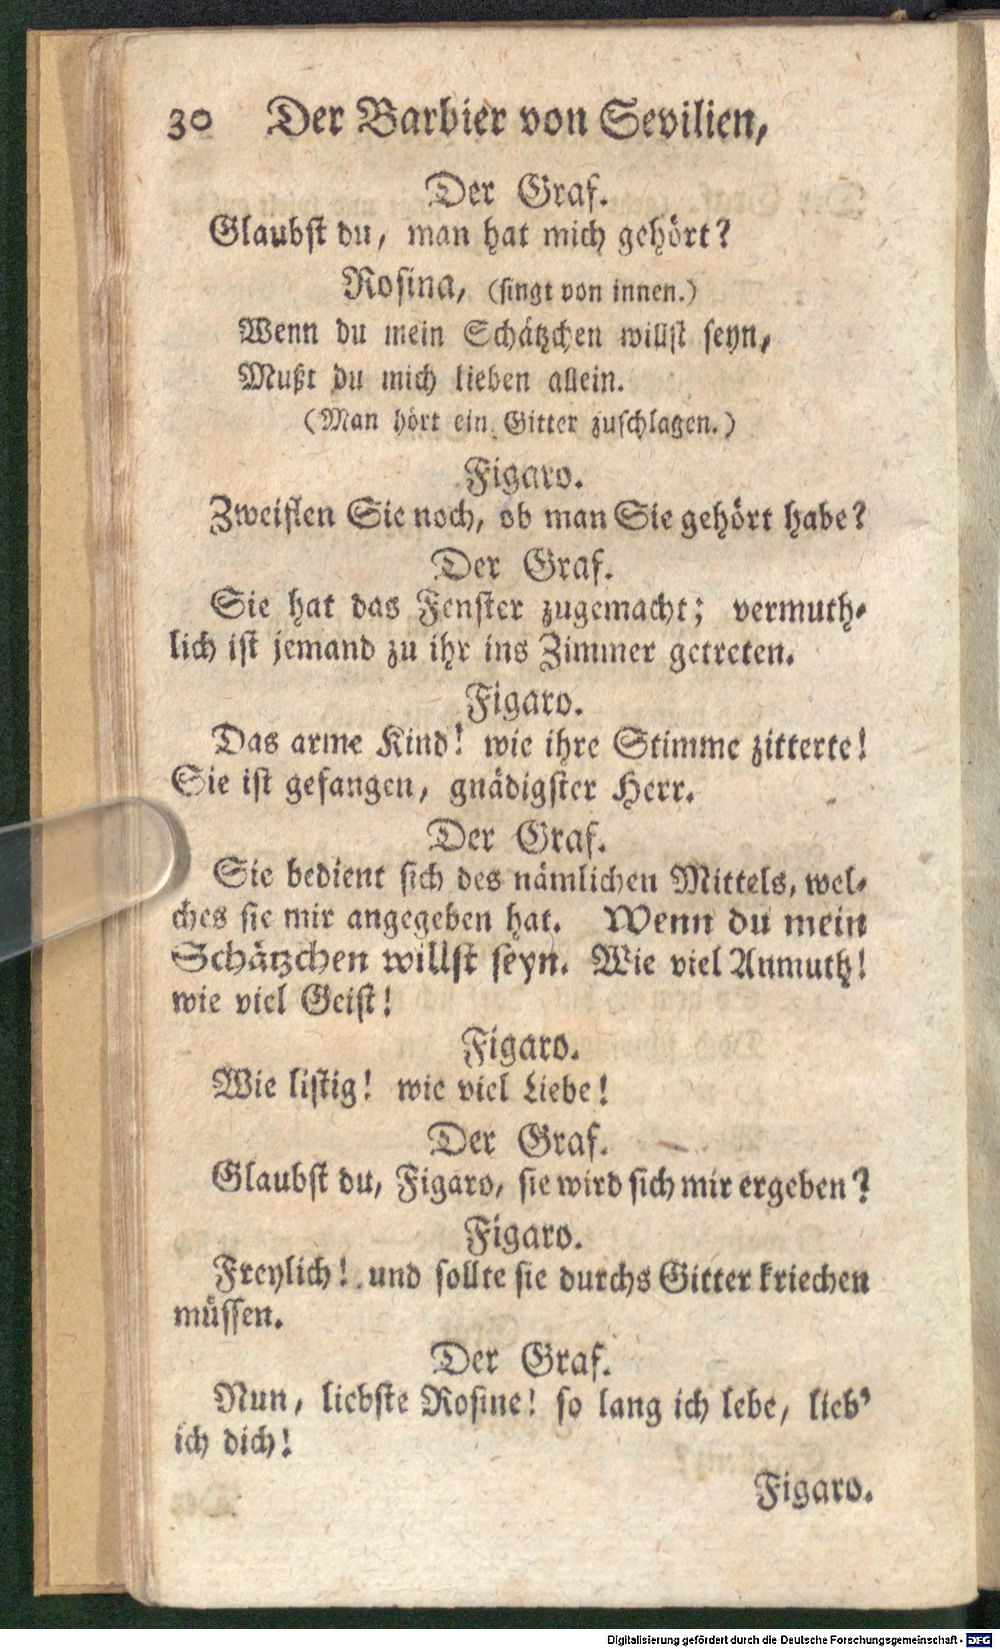 30 Der Barbier von Sevilien,
Der Graf.
Glaubst du, man hat mich gehört?
Rosina, (singt von innen.)
Wenn du mein Schätzchen willst seyn,
Mußt du mich lieben allein.
(Man hört ein Gitter zuschlagen.)
Figaro.
Zweiflen Sie noch, ob man Sie gehört habe?
Der Graf.
Sie hat das Fenster zugemacht; vermuth-
lich ist jemand zu ihr ins Zimmer getreten.
Figaro.
Das arme Kind! wie ihre Stimme zitterte!
Sie ist gefangen, gnädigster Herr.
Der Graf.
Sie bedient sich des nämlichen Mittels, wel-
ches sie mir angegeben hat. Wenn du mein
Schätzchen willst seyn. Wie viel Anmuth!
wie viel Geist!
Figaro.
Wie listig! wie viel Liebe!
Der Graf.
Glaubst du, Figaro, sie wird sich mir ergeben?
Figaro.
Freylich! und sollte sie durchs Gitter kriechen
müssen.
Der Graf.
Nun, liebste Rosine! so lang ich lebe, lieb'
ich dich!
Figaro.
Digitalisierung gefördert durch die Deutsche Forschungsgemeinschaft - DFG